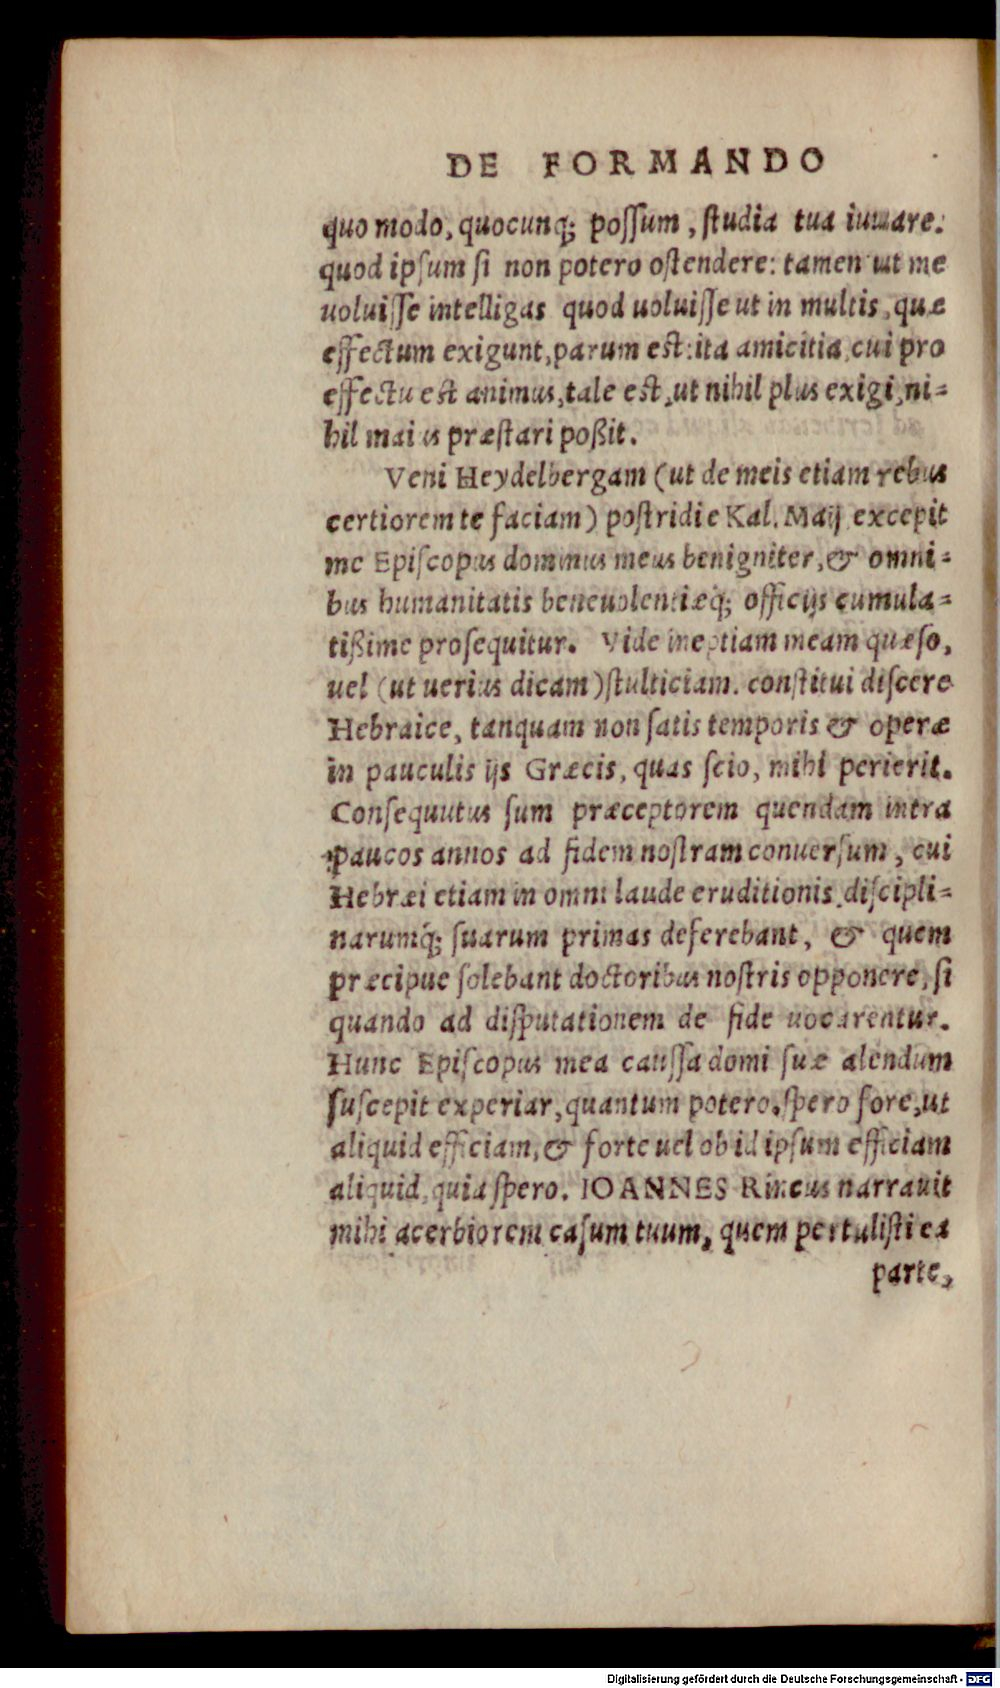 DE FORMANDO
quo modo, quocunq; possum, studia tua iuuare.
quod ipsum si non potero ostendere: tamen ut me
uoluisse intelligas quod uoluisse ut in multis, quæ
effectum exigunt, parum est: ita amicitia, cui pro
effectu est animus, tale est, ut nihil plus exigi, ni=
hil maius præstari poßit.
Veni Heydelbergam (ut de meis etiam rebus
certiorem te faciam) postridie Kal. Maij excepit
me Episcopus dominus meus benigniter, & omni=
bus humanitatis beneuolentiæq́; officijs cumula=
tißime prosequitur. Vide ineptiam meam quæso,
uel (ut uerius dicam) stulticiam. constitui discere
Hebraice, tanquam non satis temporis & operæ
in pauculis ijs Græcis, quas scio, mihi perierit.
Consequutus sum præceptorem quendam intra
paucos annos ad fidem nostram conuersum, cui
Hebræi etiam in omni laude eruditionis, discipli=
narumq́; suarum primas deferebant, & quem
præcipue solebant doctoribus nostris opponere, si
quando ad disputationem de fide uocarentur.
Hunc Episcopus mea caussa domi suæ alendum
suscepit experiar, quantum potero. spero fore, ut
aliquid efficiam, & forte uel ob id ipsum efficiam
aliquid, quia spero. IOANNES Rincus narrauit
mihi acerbiorem casum tuum, quem pertulisti ea
parte,
Digitalisierung gefördert durch die Deutsche Forschungsgemeinschaft - DFG